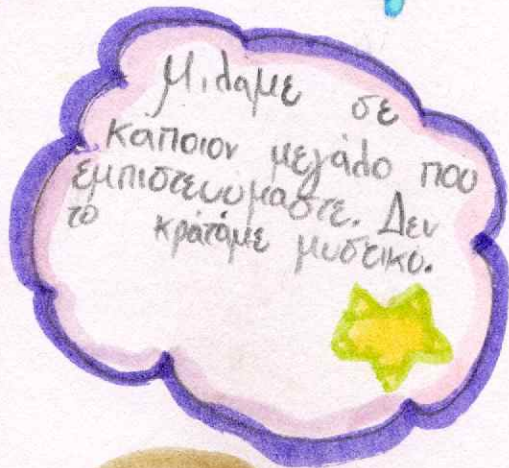 Μιλάμε σε
κάποιον μεγάλο που
εμπιστευόμαστε. Δεν
το κρατάμε μυστικό.